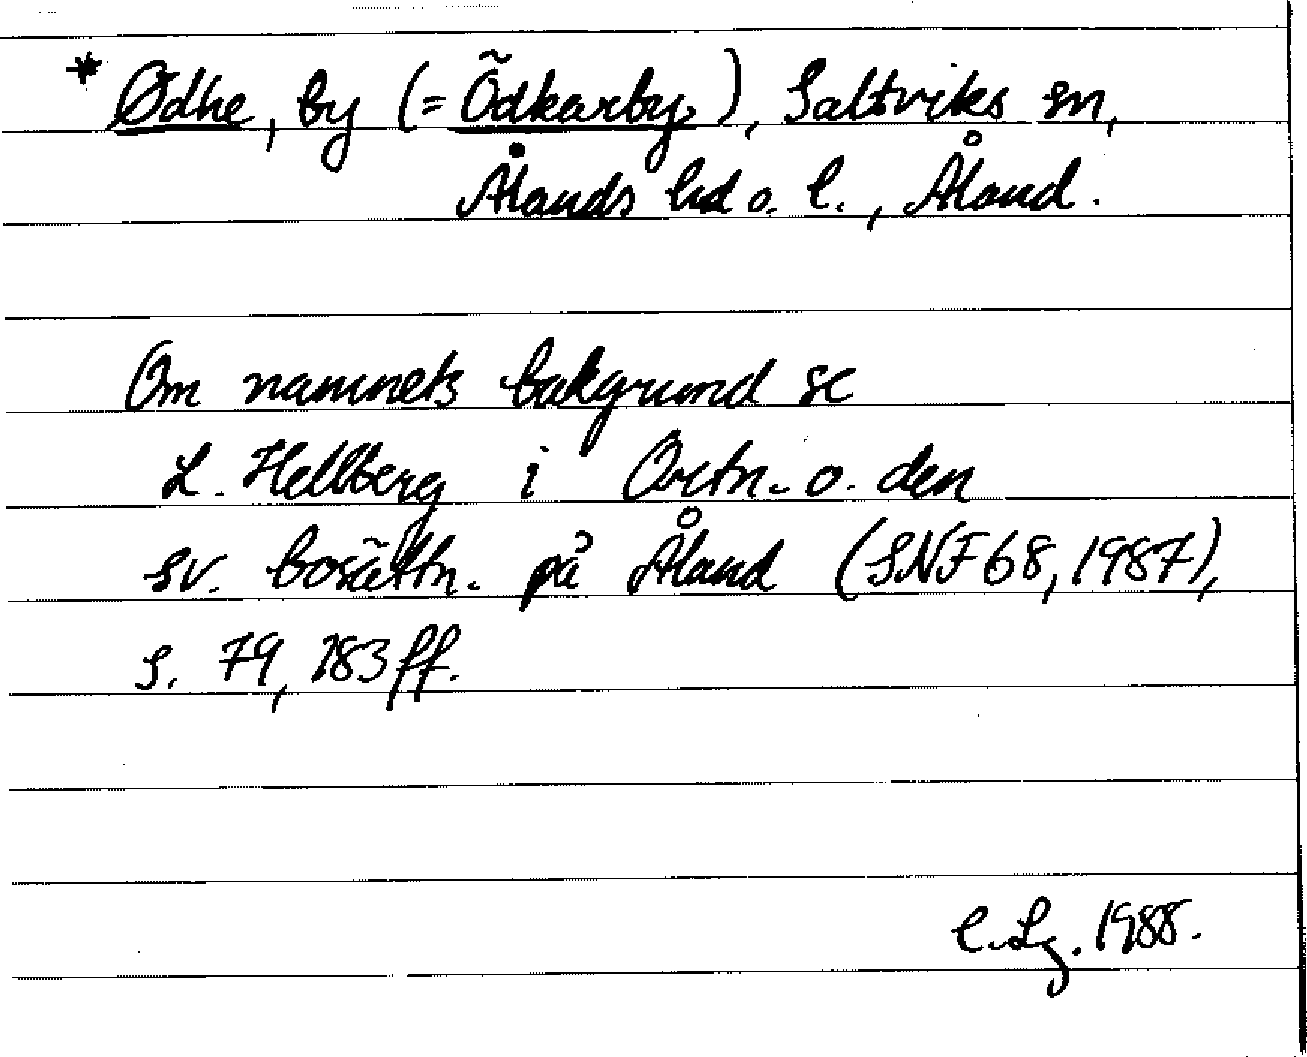 * Ødhe, by (= Ödkarby), Saltviks sn,
Ålands hd o. l., Åland.
Om namnets bakgrund se
L. Hellberg i Ortn. o. den
sv. bosättn. på Åland (SNF 68, 1987),
s. 79, 183 ff.
C. Lg. 1988.